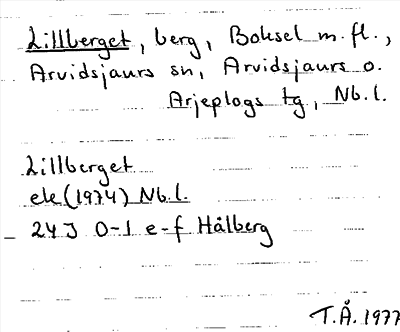 Lillberget, berg, Boksel m.fl.,
Arvidsjaurs sn, Arvidsjaurs o.
Arjeplogs tg, Nb.l.
Lillberget
ek(1974) Nb.l.
24J 0-1 e-f Hålberg
T.Å. 1977